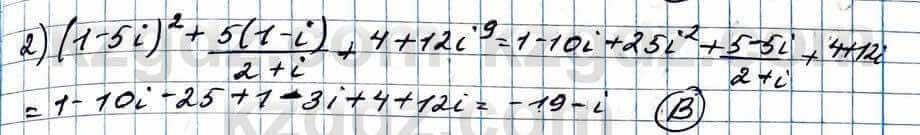 2) (1-5i)² + 5(1-i)/(2+i) + 4+12i⁹ = 1-10i+25i² + (5-5i)/(2+i) + 4+12i
= 1-10i-25+1-3i+4+12i = -19-i (B)